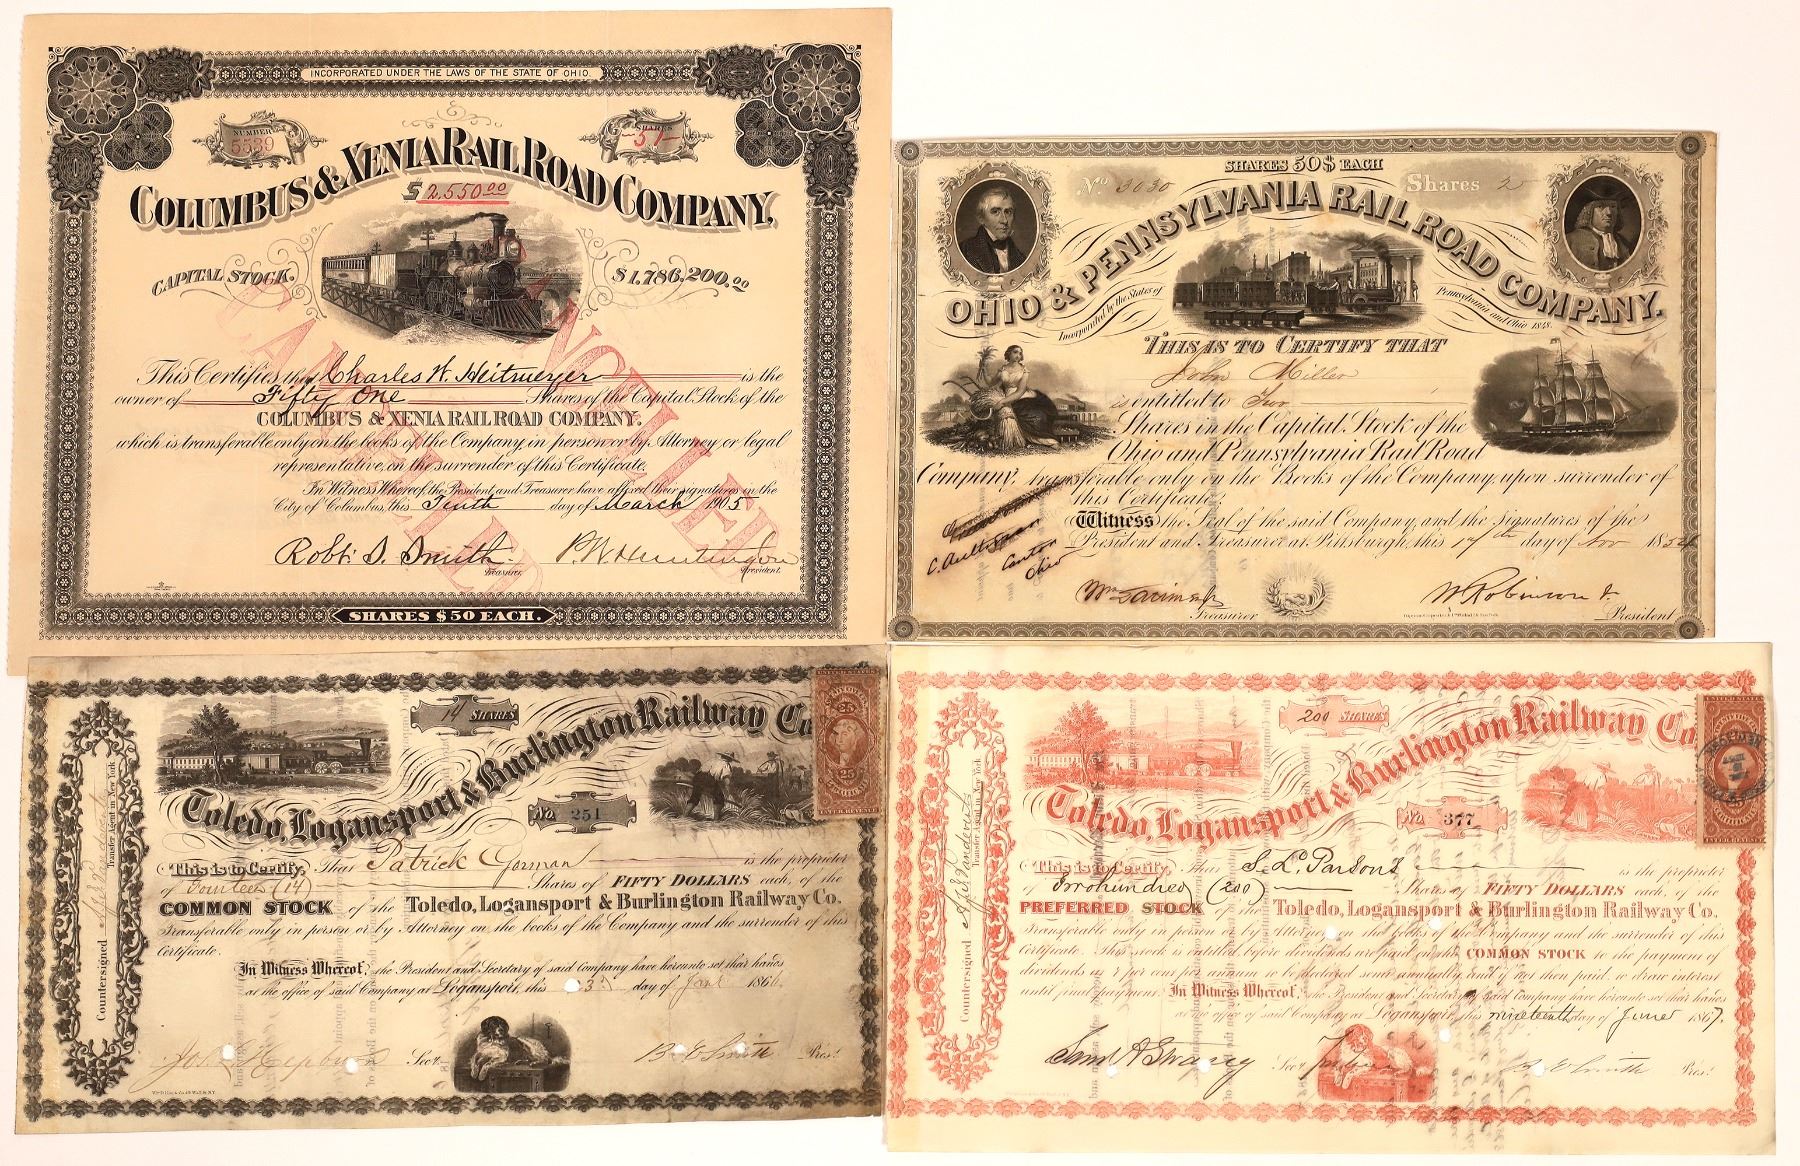 INCORPORATED UNDER THE LAWS OF THE STATE OF OHIO.
NUMBER
5539
SHARES
51
COLUMBUS & XENIA RAIL ROAD COMPANY,
$ 2,550.00
CAPITAL STOCK.
$1,786,200.00
CANCELLED
CANCELLED
This Certifies that Charles W. Heitmeyer is the
owner of Fifty One Shares of the Capital Stock of the
COLUMBUS & XENIA RAIL ROAD COMPANY.
which is transferable only on the books of the Company, in person or by Attorney, or legal
representative, on the surrender of this Certificate.
In Witness Whereof, the President and Treasurer have affixed their signatures in the
City of Columbus, this Tenth day of March 1905
Robt. S. Smith
Treasurer.
P. W. Huntington
President.
SHARES $50 EACH.
SHARES 50$ EACH
No. 3030
Shares 2
OHIO & PENNSYLVANIA RAIL ROAD COMPANY.
Incorporated by the States of
Pennsylvania and Ohio 1848.
THIS IS TO CERTIFY THAT
John Miller
is entitled to Two
Shares in the Capital Stock of the
Ohio and Pennsylvania Rail Road
Company, transferable only on the Books of the Company, upon surrender of
this Certificate.
Witness the Seal of the said Company, and the Signatures of the
President and Treasurer at Pittsburgh, this 17th day of Nov 185
C. Aultman
Canton
Ohio
Treasurer
W Robinson Jr
President
14 SHARES
Toledo, Logansport & Burlington Railway Co
No. 251
25
25
INTER. REVENUE
This is to Certify, That Patrick Gorman is the proprietor
of Fourteen (14) Shares of FIFTY DOLLARS each, of the
COMMON STOCK of the Toledo, Logansport & Burlington Railway Co.
Transferable only in person or by Attorney on the books of the Company and the surrender of this
Certificate.
In Witness Whereof, the President and Secretary of said Company have hereunto set their hands
at the office of said Company at Logansport, this 3d day of June 186
Secy.
B. E. Smith Prest.
Countersigned
Transfer Agent in New York
200 SHARES
Toledo, Logansport & Burlington Railway Co
No. 377
UNITED STATES
INTER. REVENUE
This is to Certify, That S. L. Parsons is the proprietor
of Two hundred (200) Shares of FIFTY DOLLARS each, of the
PREFERRED STOCK of the Toledo, Logansport & Burlington Railway Co.
Transferable only in person or by Attorney on the books of the Company and the surrender of this
certificate. This stock is entitled before dividends are paid on the COMMON STOCK to the payment of
dividends at 7 per cent per annum to be declared semi annually and if not then paid to draw interest
until final payment. In Witness Whereof, the President and Secretary of said Company have hereunto set their hands
at the office of said Company at Logansport, this nineteenth day of June 1867.
Secy.
B. E. Smith Prest.
Countersigned
Transfer Agent in New York